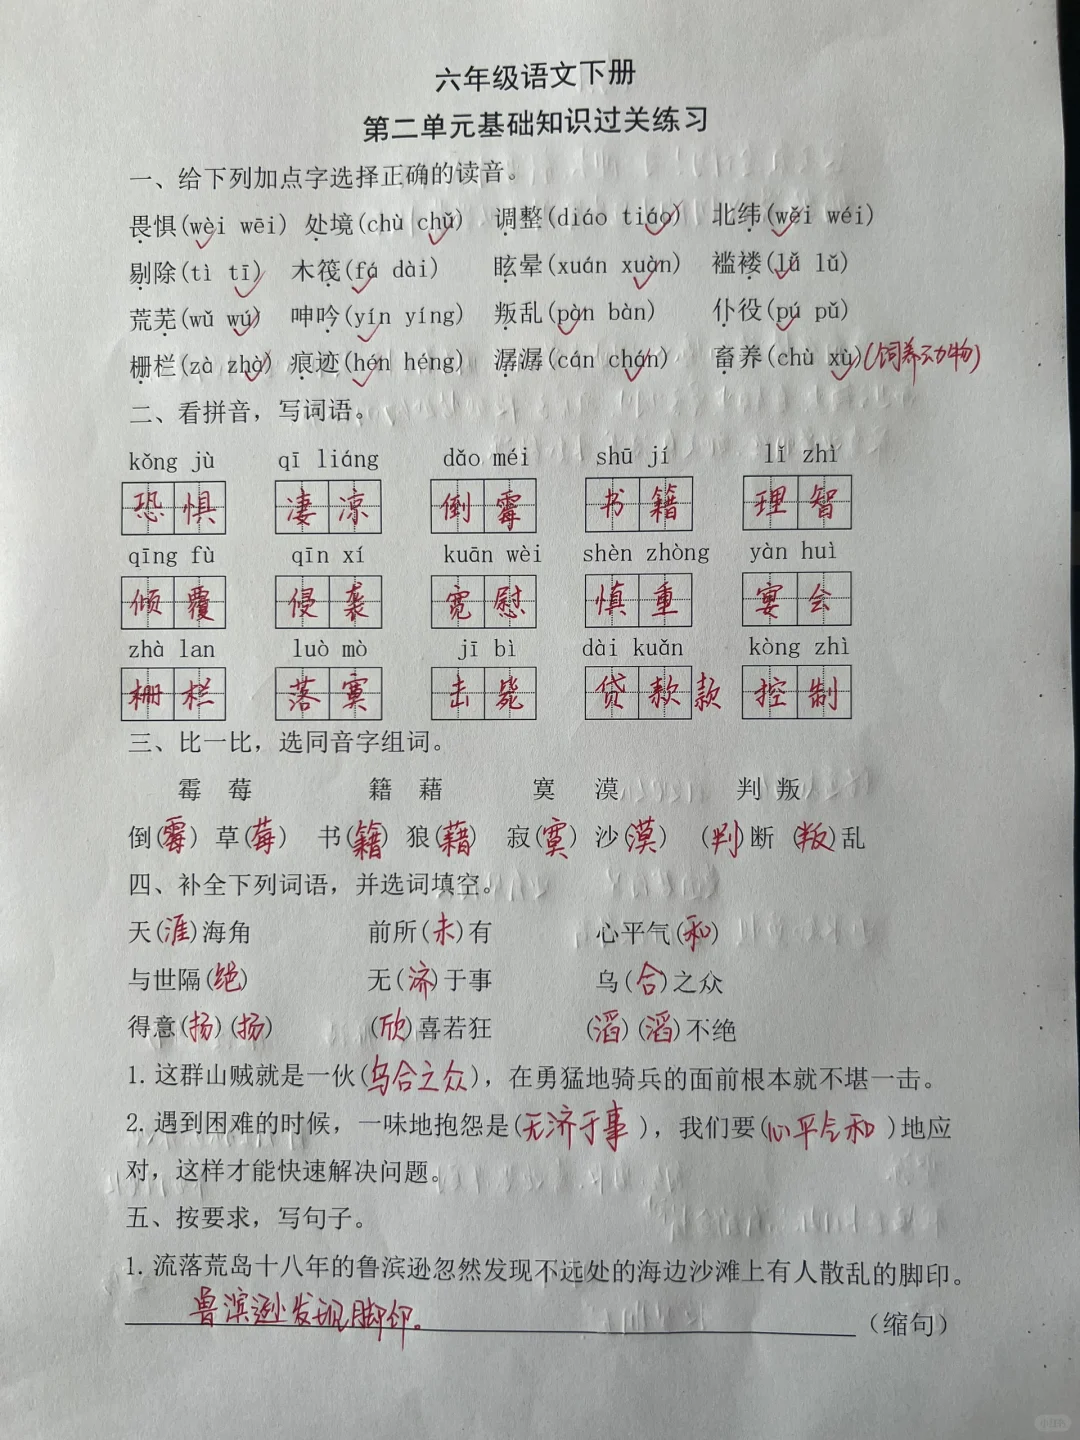 六年级语文下册
第二单元基础知识过关练习
一、给下列加点字选择正确的读音。
畏惧(wèi wēi) 处境(chù chǔ) 调整(diáo tiáo) 北纬(wěi wéi)
剔除(tì tī) 木筏(fá dài) 眩晕(xuán xuàn) 褴褛(lǚ lǔ)
荒芜(wǔ wú) 呻吟(yín yíng) 叛乱(pàn bàn) 仆役(pú pǔ)
栅栏(zà zhà) 痕迹(hén héng) 潺潺(cán chán) 畜养(chù xù)(饲养动物)
二、看拼音，写词语。
kǒng jù qī liáng dǎo méi shū jí lǐ zhì
恐惧 凄凉 倒霉 书籍 理智
qīng fù qīn xí kuān wèi shèn zhòng yàn huì
倾覆 侵袭 宽慰 慎重 宴会
zhà lan luò mò jī bì dài kuǎn kòng zhì
栅栏 落寞 击毙 贷款 款 控制
三、比一比，选同音字组词。
霉 莓 籍 藉 寞 漠 判 叛
倒(霉) 草(莓) 书(籍) 狼(藉) 寂(寞) 沙(漠) (判)断 (叛)乱
四、补全下列词语，并选词填空。
天(涯)海角 前所(未)有 心平气(和)
与世隔(绝) 无(济)于事 乌(合)之众
得意(扬)(扬) (欣)喜若狂 (滔)(滔)不绝
1. 这群山贼就是一伙(乌合之众)，在勇猛地骑兵的面前根本就不堪一击。
2. 遇到困难的时候，一味地抱怨是(无济于事)，我们要(心平气和)地应
对，这样才能快速解决问题。
五、按要求，写句子。
1. 流落荒岛十八年的鲁滨逊忽然发现不远处的海边沙滩上有人散乱的脚印。
鲁滨逊发现脚印。 (缩句)
小红书